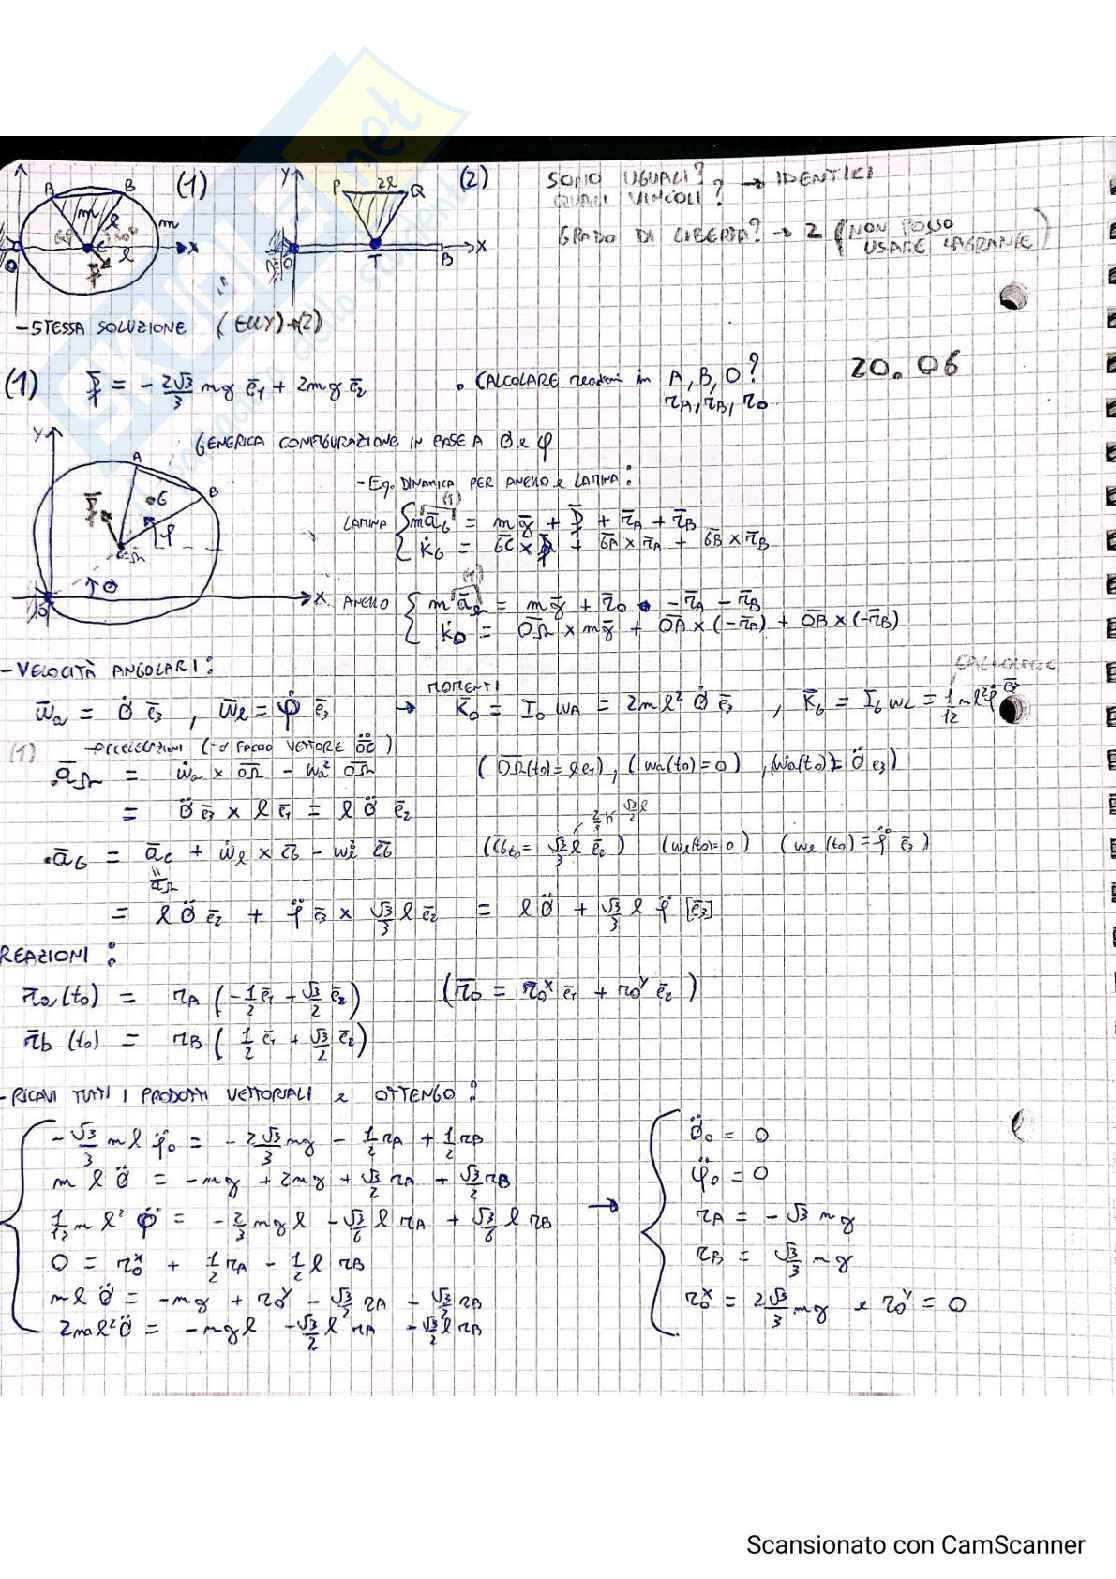 (1)
(2)
SONO UGUALI? → IDENTICI
QUALI VINCOLI?
GRADO DI LIBERTÀ? → 2 (NON POSSO USARE LAGRANGE)
A B m l m x O
Y P 2l Q O T B X
- STESSA SOLUZIONE
(1) F = - 2√3/3 mg ē1 + 2mg ē2
• CALCOLARE reazioni in A, B, O?
rA, rB, rO
20.06
GENERICA CONFIGURAZIONE IN BASE A θ e φ
Y A B G φ Ω θ O X
- Eq. DINAMICA PER ANELLO e LAMINA:
LAMINA { m āG = m ḡ + F̄ + r̄A + r̄B
K̇G = GC × F̄ + GA × r̄A + GB × r̄B
ANELLO { m āΩ = m ḡ + r̄O - r̄A - r̄B
K̇O = OΩ × m ḡ + OA × (-r̄A) + OB × (-r̄B)
- VELOCITÀ ANGOLARI:
MOMENTI
ω̄a = θ̇ ē3 , ω̄l = φ̇ ē3 → K̄O = IO ωA = 2ml² θ̇ ē3 , K̄G = IG ωL = 1/12 ml² φ̇ ē3
(1) → ACCELERAZIONI
āΩ = ω̇a × OΩ - ωa² OΩ (OΩ(t0) = l ē1), (ωa(t0) = 0), (ω̇a(t0) = θ̈ ē3)
= θ̈ ē3 × l ē1 = l θ̈ ē2
• āG = āC + ω̇l × CG - ωl² CG (CG t0 = √3/3 l ē2) (ωl(t0) = 0) (ω̇l(t0) = φ̈ ē3)
āΩ
= l θ̈ ē2 + φ̈ ē3 × √3/3 l ē2 = l θ̈ + √3/3 l φ̈ [ē3]
REAZIONI:
r̄a(t0) = rA (-1/2 ē1 + √3/2 ē2) (r̄O = rOˣ ē1 + rOʸ ē2)
r̄b(t0) = rB (1/2 ē1 + √3/2 ē2)
- RICAVI TUTTI I PRODOTTI VETTORIALI e OTTENGO:
{ -√3/3 ml φ̈0 = - 2√3/3 mg - 1/2 rA + 1/2 rB
m l θ̈ = -mg + 2mg + √3/2 rA + √3/2 rB
1/12 m l² φ̈ = - 2/3 mg l - √3/6 l rA + √3/6 l rB
0 = rOˣ + 1/2 rA - 1/2 l rB
m l θ̈ = -mg + rOʸ - √3/2 rA - √3/2 rB
2ml² θ̈ = -mg l - √3/2 l rA - √3/2 l rB
→ { θ̈0 = 0
φ̈0 = 0
rA = - √3 mg
rB = √3/3 mg
rOˣ = 2√3/3 mg e rOʸ = 0
Scansionato con CamScanner